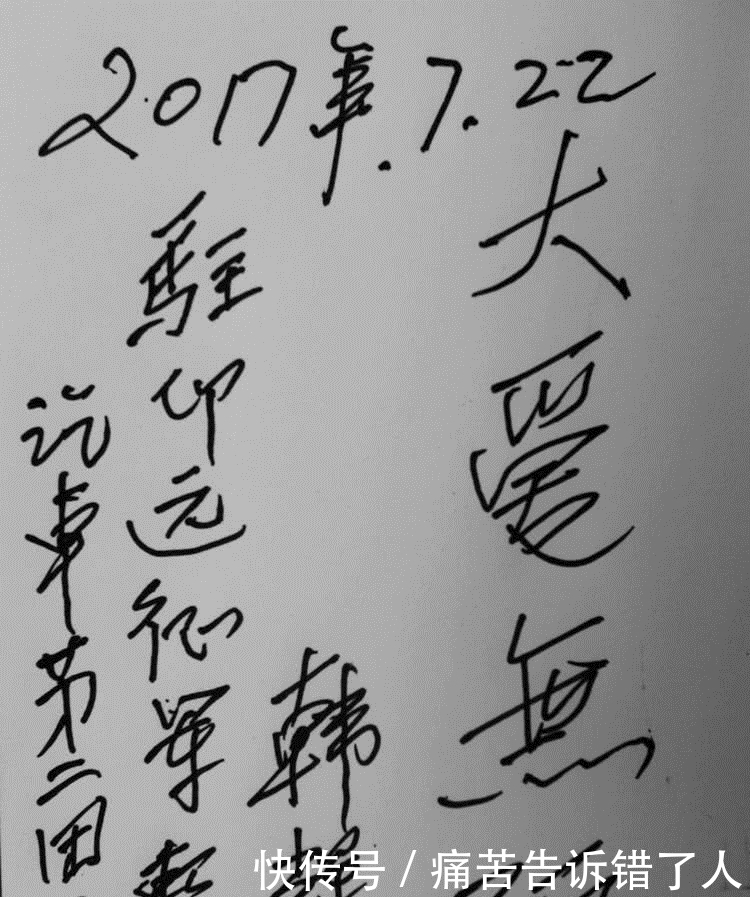 2017年.7.22
大愛無
韓
駐印远征军
汽車第二团
快传号 / 痛苦告诉错了人